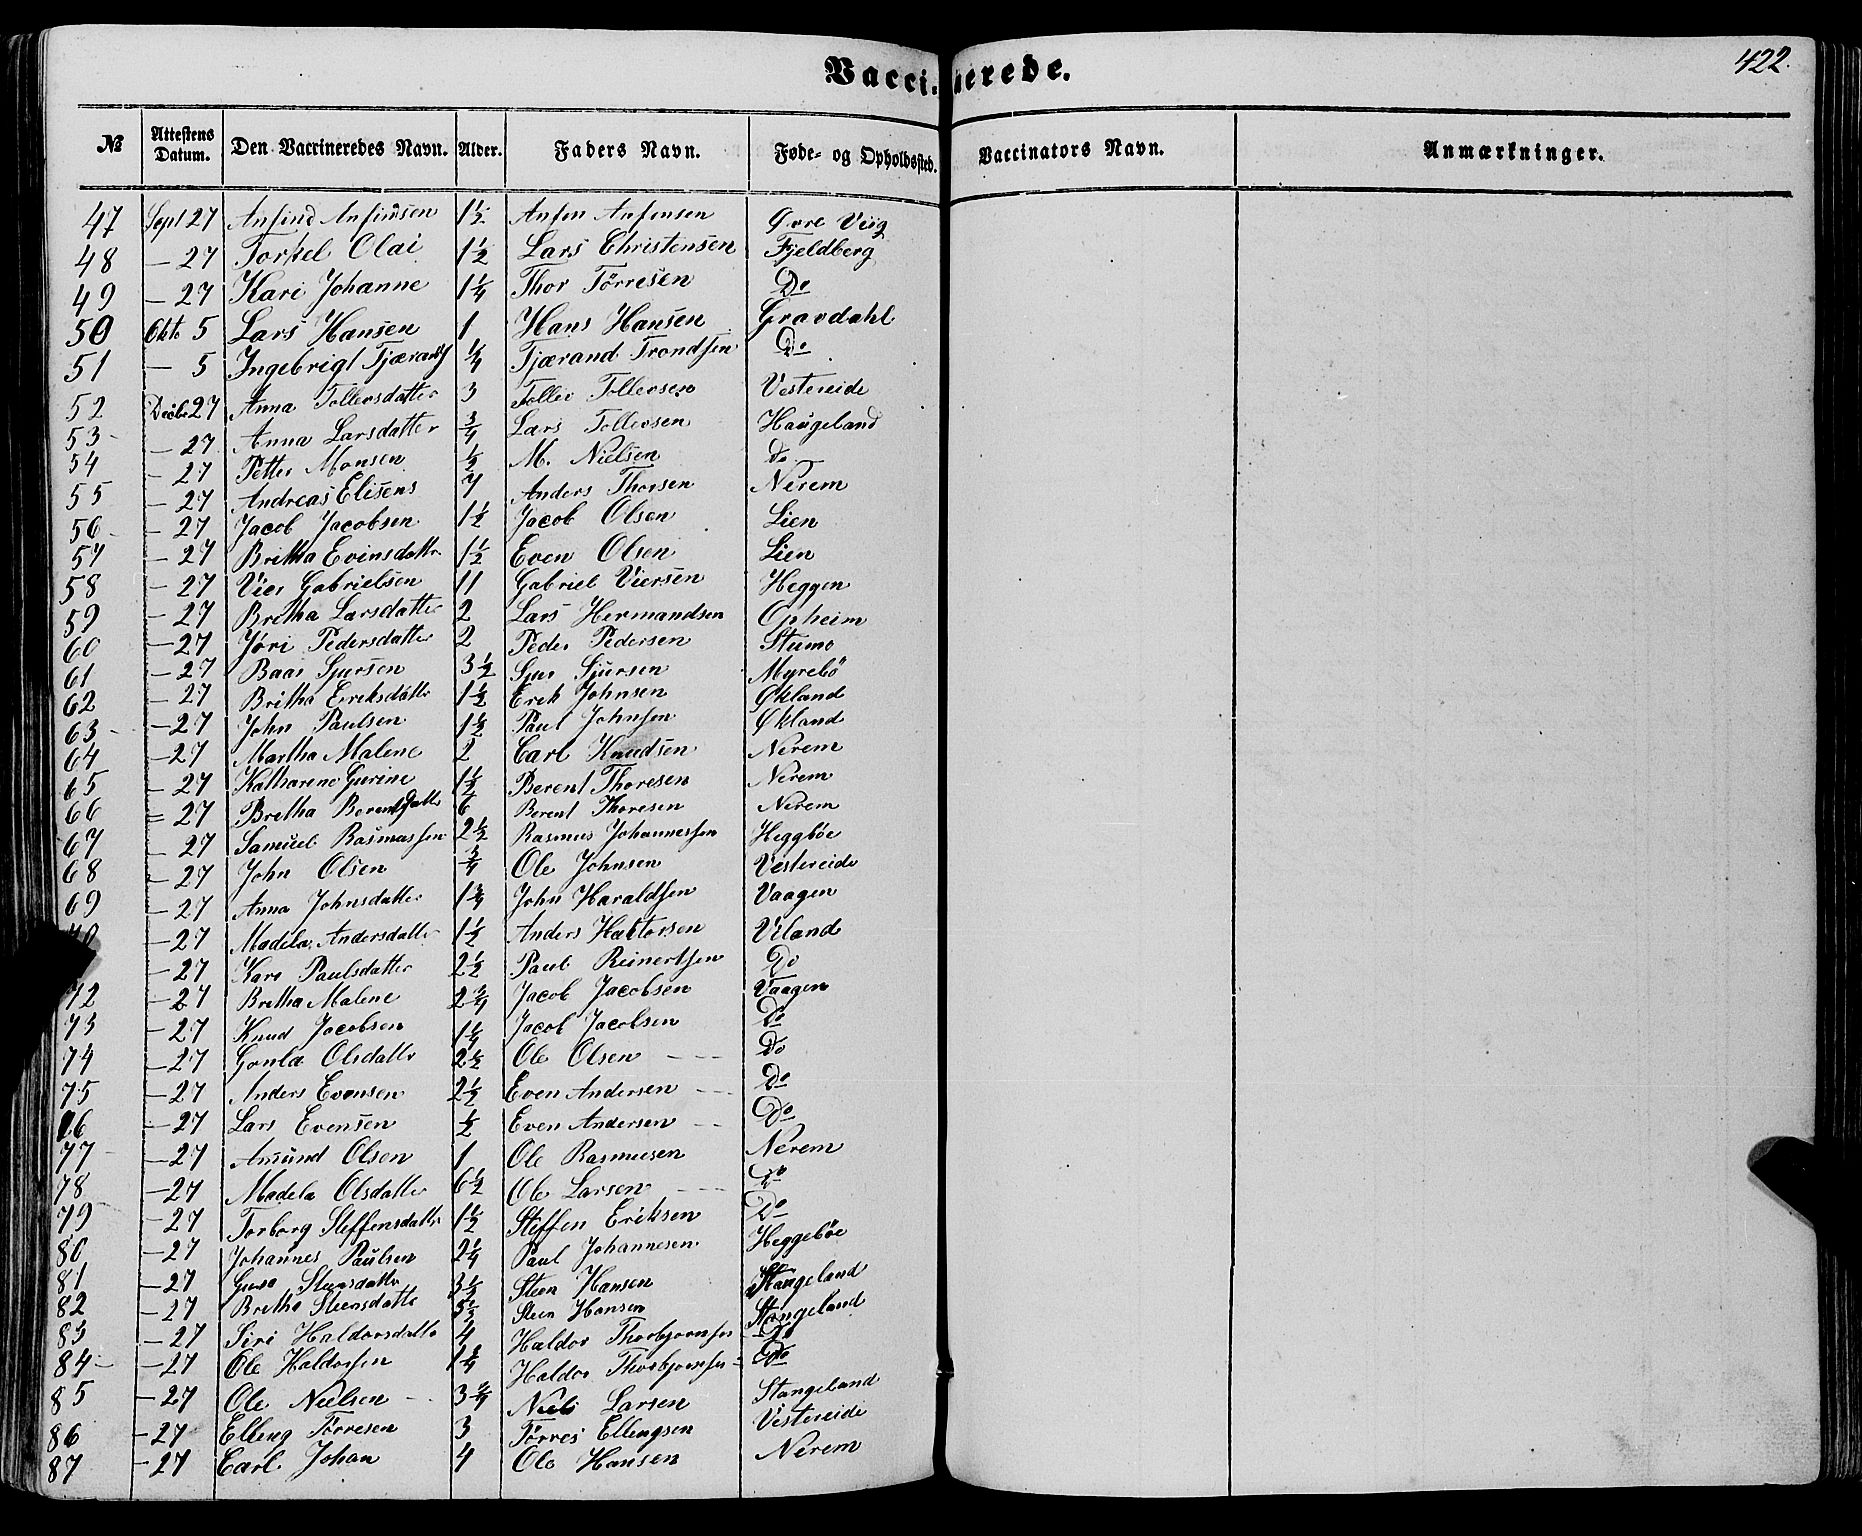 422.
Vaccinerede.
№ Attestens Datum. Den Vaccineredes Navn. Alder. Faders Navn. Føde- og Opholdssted. Vaccinators Navn. Anmærkninger.
47 Sept 27 Anfind Anfinsen 1½ Anfen Anfensen
48 — 27 Torkel Olai 1½ Lars Christensen Fjeldberg
49 — 27 Kari Johanne 1¼ Thor Törresen Do
50 Okto 5 Lars Hansen 1 Hans Hansen Gravdahl
51 — 5 Ingebrigt ¼ Tjærand Trondsen Do
52 Decbr 27 Anna Tollevsdatter 3 Tollev Tollevsen Vestereide
53 — 27 Anna Larsdatter ¾ Lars Tollevsen Haugeland
54 — 27 Petter Monsen ½ M. Nielsen do
55 — 27 Andreas Elisens 7 Anders Thorsen Nerem
56 — 27 Jacob Jacobsen 1½ Jacob Olsen Lien
57 — 27 Britha Evinsdattr 1½ Even Olsen Lien
58 — 27 Vier Gabrielsen 11 Gabriel Viersen Heggen
59 — 27 Britha Larsdatter 2 Lars Hermandsen Opheim
60 — 27 Jöri Pedersdatter 2 Peder Pedersen Stumo
61 — 27 Baar Sjursen 3½ Sjur Sjursen Myrebö
62 — 27 Britha Eriksdattr 1½ Erik Johnsen Økland
63 — 27 John Paulsen 1½ Paul Johnsen Økland
64 — 27 Martha Malene 2 Carl Knudsen Nerem
65 — 27 Katharene Gurine 1½ Berent Thoresen Nerem
66 — 27 Britha Berentsdattr 6 Berent Thoresen Nerem
67 — 27 Samuel Rasmussen 2½ Rasmus Johannessen Heggböe
68 — 27 John Olsen ¾ Ole Johnsen Vestereide
69 — 27 Anna Johnsdatter 1¾ John Haraldsen Vaagen
70 — 27 Madela Andersdatter 1½ Anders Haktorsen Viland
— 27 Kari Paulsdatter 2½ Paul Reinertsen Do
72 — 27 Britha Malene 2¾ Jacob Jacobsen Vaagen
73 — 27 Knud Jacobsen 1¼ Jacob Jacobsen Do
74 — 27 Gonla Olsdattr 2½ Ole Olsen — — — Do
75 — 27 Anders Evensen 2½ Even Andersen — — Do
76 — 27 Lars Evensen ½ Even Andersen — — Do
77 — 27 Amund Olsen 1 Ole Rasmusen Nerem
78 — 27 Madela Olsdatter 6½ Ole Larsen — — — Do
79 — 27 Torborg Steffensdattr 1½ Steffen Eriksen Do
80 — 27 Johannes Paulsen 2¼ Paul Johannesen Heggeböe
81 — 27 Guro Steensdattr 3½ Steen Hansen Stangeland
82 — 27 Britha Steensdattr 5½ Steen Hansen Stangeland
83 — 27 Siri Haldorsdattr 4 Haldor Thorbjornsen Do
84 — 27 Ole Haldorsen 1¼ Haldor Thorbjornsen Do
85 — 27 Ole Nielsen 3¾ Niels Larsen Stangeland
86 — 27 Elleng Törresen 3 Törres Ellengsen Vestereide
87 — 27 Carl Johan 4 Ole Hansen Nerem